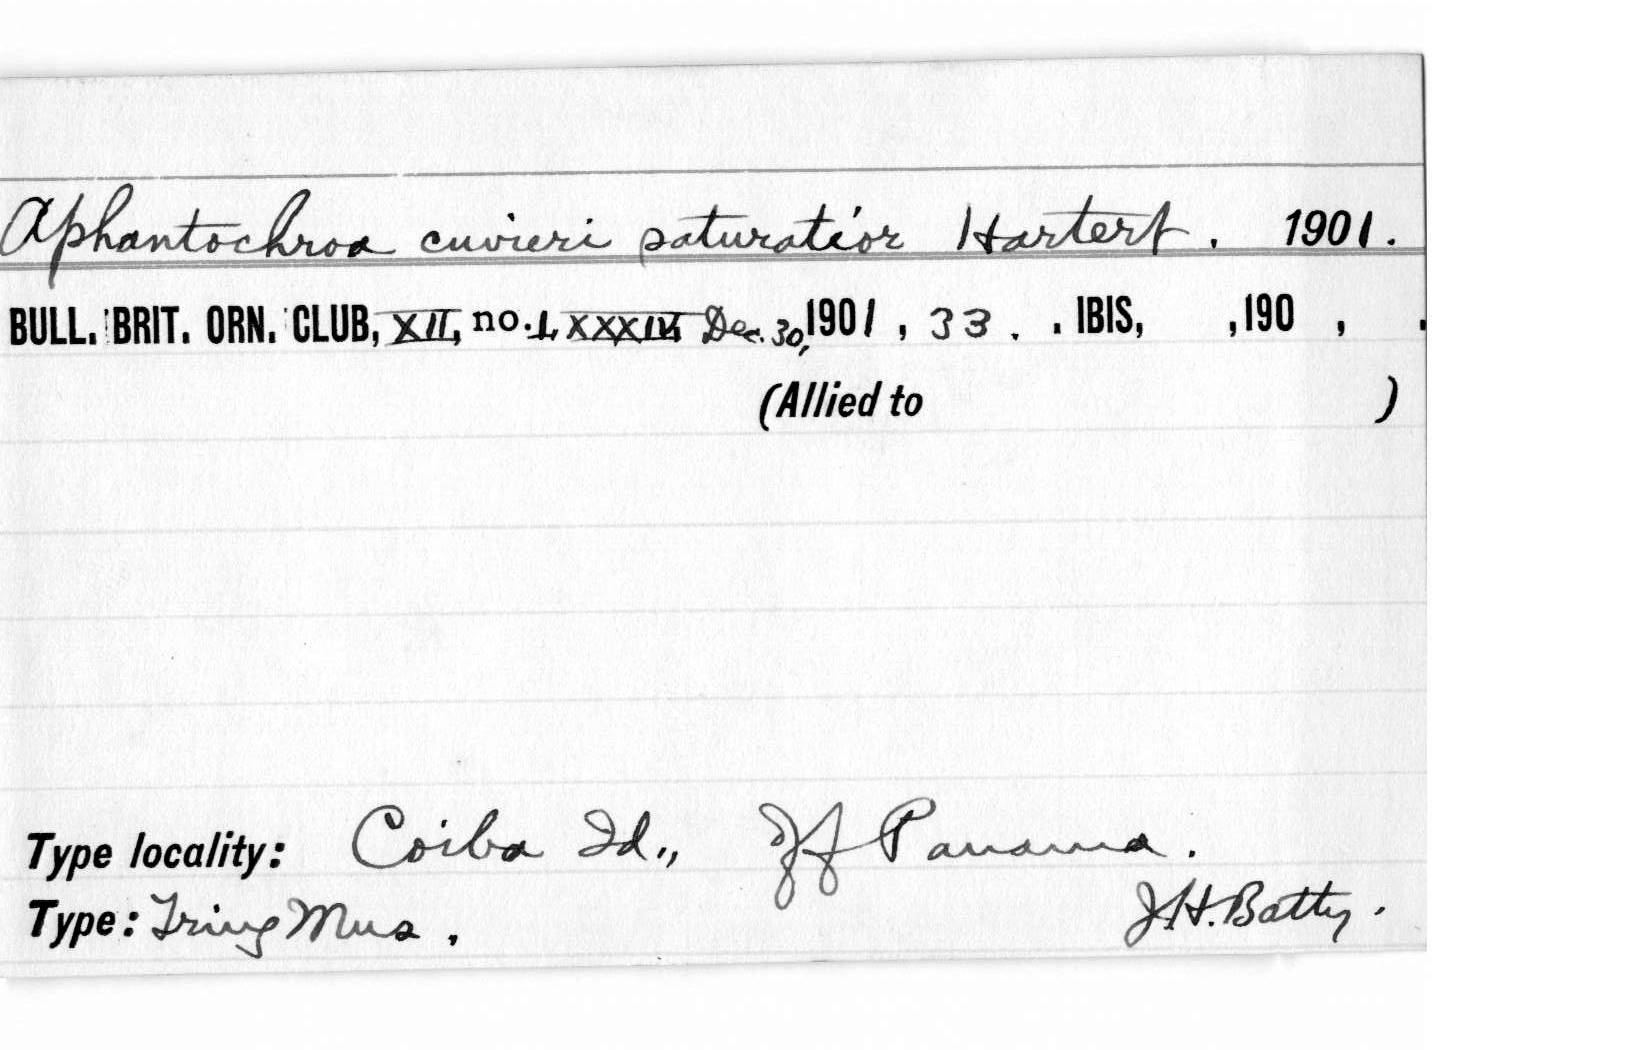 Aphantochroa cuvieri saturatior Hartert. 1901.
BULL. BRIT. ORN. CLUB, XII, no. LXXXIV, Dec. 30, 1901, 33. . IBIS, , 190 , .
(Allied to )
Type locality: Coiba Id., Panama.
Type: Tring Mus. J.H. Batty.